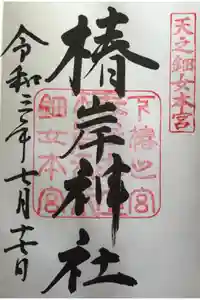 天之鈿女本宮
椿岸神社
下椿之宮
鈿女本宮
令和三年七月十七日